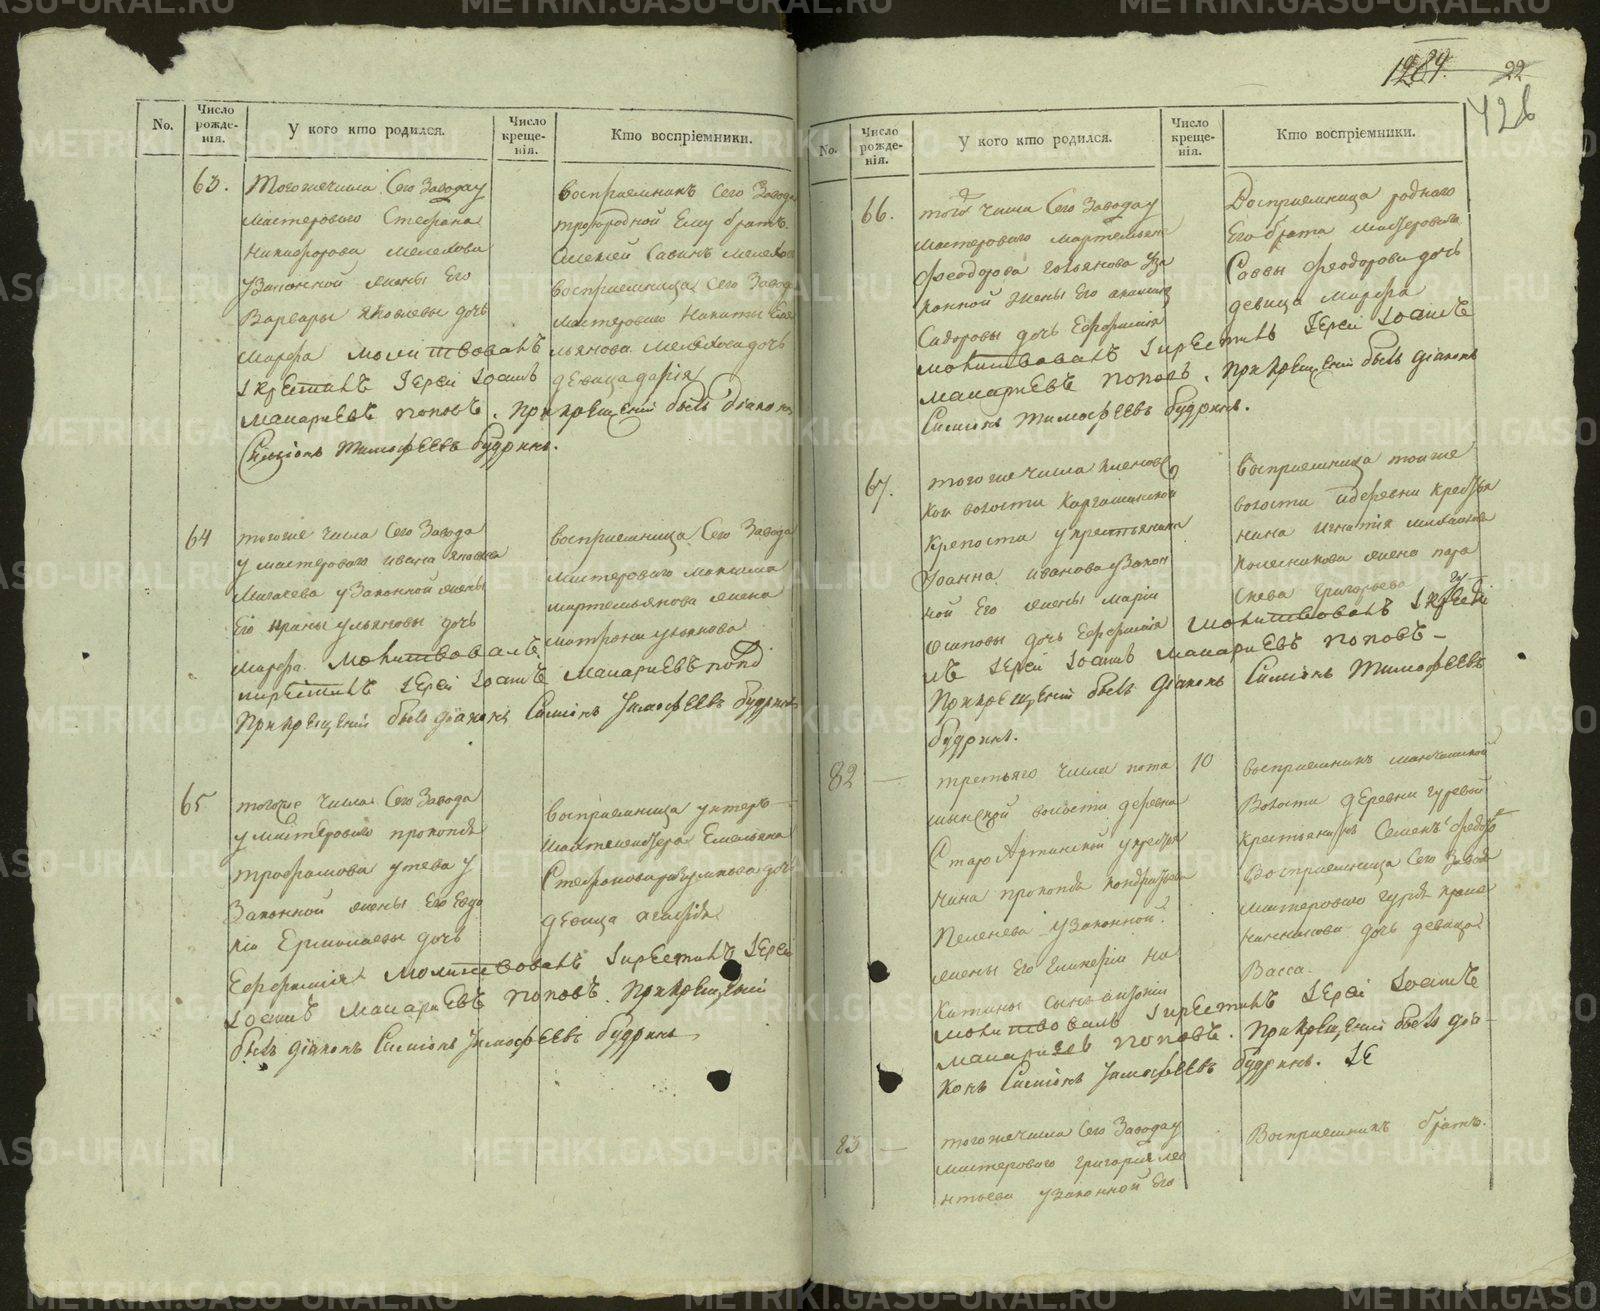 No.
Число рожде-нія.
У кого кто родился.
Число креще-нія.
Кто воспріемники.
63.
Тогожечисла Сего Заводау
мастероваго Стефана
Никифорова Мелехова
узаконной жены Его
Варвары Яковлевы дочь
марфа молитвовалъ
Iкрестилъ Iерей Iоаннъ
макариевъ поповъ. При крещении былъ діаконъ
Симіонъ Тимофеевъ будринъ.
восприемникъ Сего Завода
троюродной Ему братъ
Алексей Савинъ
восприемница Сего Завода
мастероваго Никиты
мелехова дочь
девица дария
64
тогоже числа Сего Завода
у мастероваго ивана яковлева
узаконной жены
Его ирины ульяновы дочь
марфа. Молитвовалъ
Iерей Iоаннъ Макариевъ попо
При крещении былъ діаконъ Симіонъ Тимофеевъ будринъ
восприемница Сего Завода
мастероваго максима
мартемьянова жена
матрона ульянова
65
тогоже числа Сего Завода
у мастероваго прокопья
трофимова утева у
Законной жены Его Евдо
кіи Ермолаевы дочь
Ефросинія Молитвовалъ Iкрестилъ Iерей
Iоаннъ Макариевъ Поповъ. При крещении
былъ діаконъ Симіонъ Тимофеевъ будринъ
восприемница унтеръ
шихтмейстера Емельяна
Стефанова дочь
девица агафья
1284.
22
428
No.
Число рожде-нія.
У кого кто родился.
Число креще-нія.
Кто воспріемники.
66.
того числа Сего Заводау
мастероваго мартемьяна
Феодорова гольянова уза
конной жены Его
Сидоровы дочь Ефросинія
молитвовалъ Iкрестилъ Iерей Iоаннъ
макариевъ поповъ. При крещении былъ діаконъ
Симіонъ Тимофеевъ будринъ.
Восприемница роднаго
Его брата мастероваго
Саввы Феодорова дочь
девица марфа
67.
тогоже числа
кой волости Каргашинской
крепости у крестьянина
Iоанна иванова узакон
ной Его жены маріи
Осиповы дочь Ефросинія молитвовалъ Iкрести
лъ Iерей Iоаннъ макариевъ поповъ
При крещении былъ діаконъ Симіонъ Тимофеевъ
будринъ.
Восприемница тоиже
волости идеревни крестья
нина игнатія михайлова
колесникова жена пара
скева Григорьева
82
третьяго числа пота
шинской волости деревни
Старо Артинской укрестья
нина прокопья кондратьева
Пеленева узаконной
жены Его Гликеріи Ни
китины сынъ антоній
молитвовалъ Iкрестилъ Iерей Iоаннъ
макариевъ поповъ. При крещении былъ діа
конъ Симіонъ Тимофеевъ будринъ. IЕ
10
восприемникъ манчажской
Волости деревни гуревой
крестьянинъ Семенъ федоро
Восприемница Сего Завода
мастероваго гурья
дочь девица
Васса.
83
тогожечисла Сего Заводау
мастероваго григорія лео
нтьева узаконной Его
Восприемникъ братъ